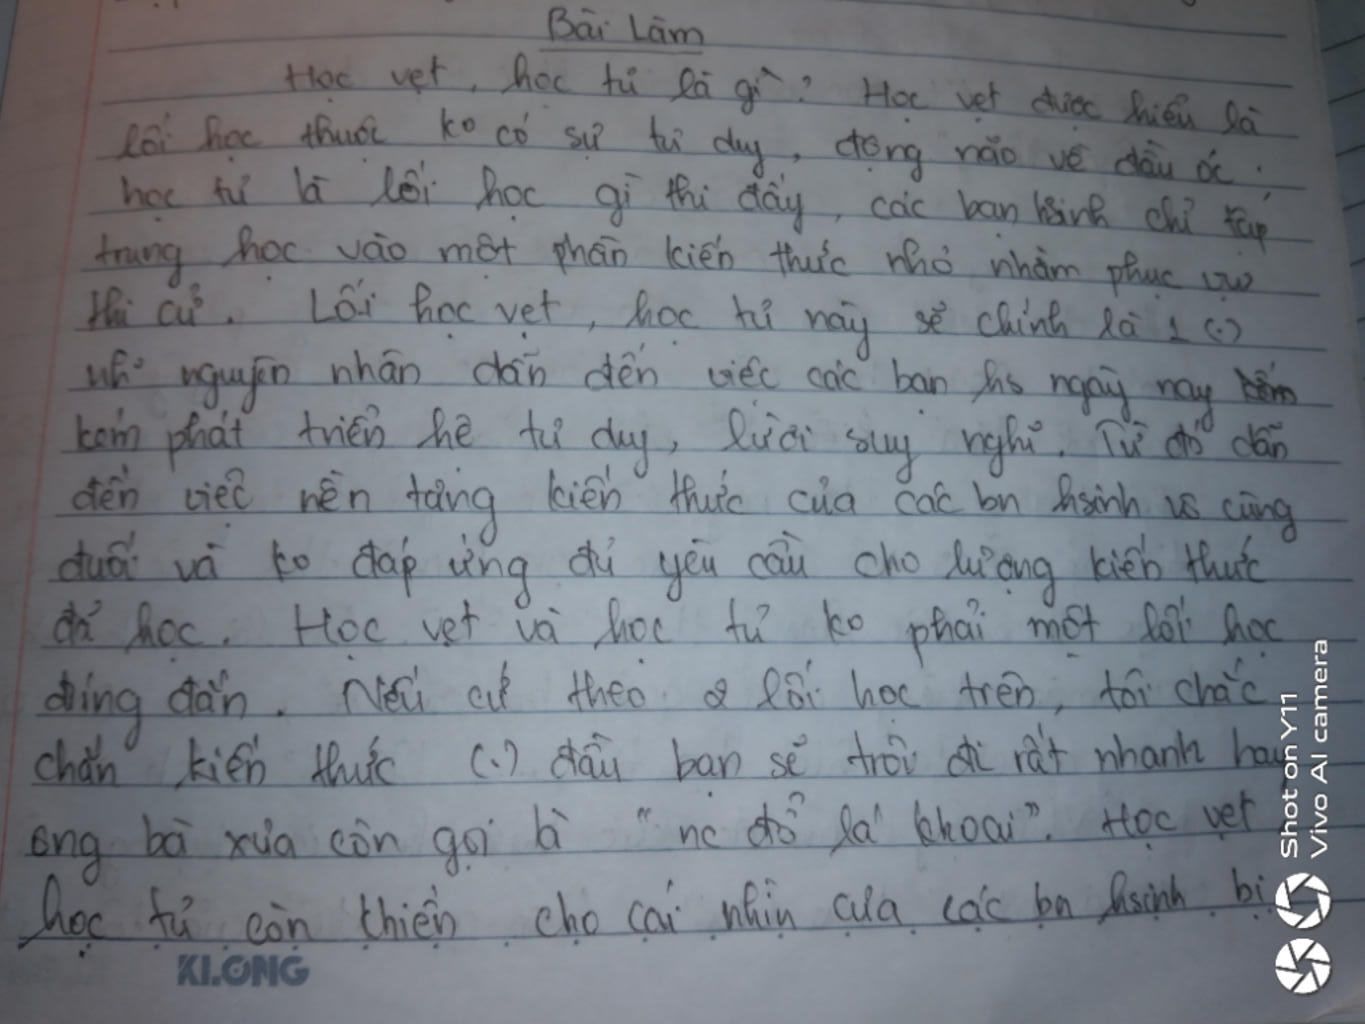 Bài Làm
Học vẹt, học tủ là gì? Học vẹt được hiểu là
lối học thuộc ko có sự tư duy, động não về đầu óc.
học tủ là lối học gì thi đấy, các bạn hsinh chỉ tập
trung học vào một phần kiến thức nhỏ nhằm phục vụ
thi cử. Lối học vẹt, học tủ này sẽ chính là 1 (.)
nh~ nguyên nhân dẫn đến việc các bạn hs ngày nay
kém phát triển hệ tư duy, lười suy nghĩ. Từ đó dẫn
đến việc nền tảng kiến thức của các bn hsinh vô cùng
đuối và ko đáp ứng đủ yêu cầu cho lượng kiến thức
đã học. Học vẹt và học tủ ko phải một lối học
đúng đắn. Nếu cứ theo 2 lối học trên, tôi chắc
chắn kiến thức (.) đầu bạn sẽ trôi đi rất nhanh hay
ông bà xưa còn gọi là "nc đổ lá khoai". Học vẹt
học tủ còn khiến cho cái nhìn của các bn hsinh bị
KLONG
Shot on Y11
Vivo AI camera